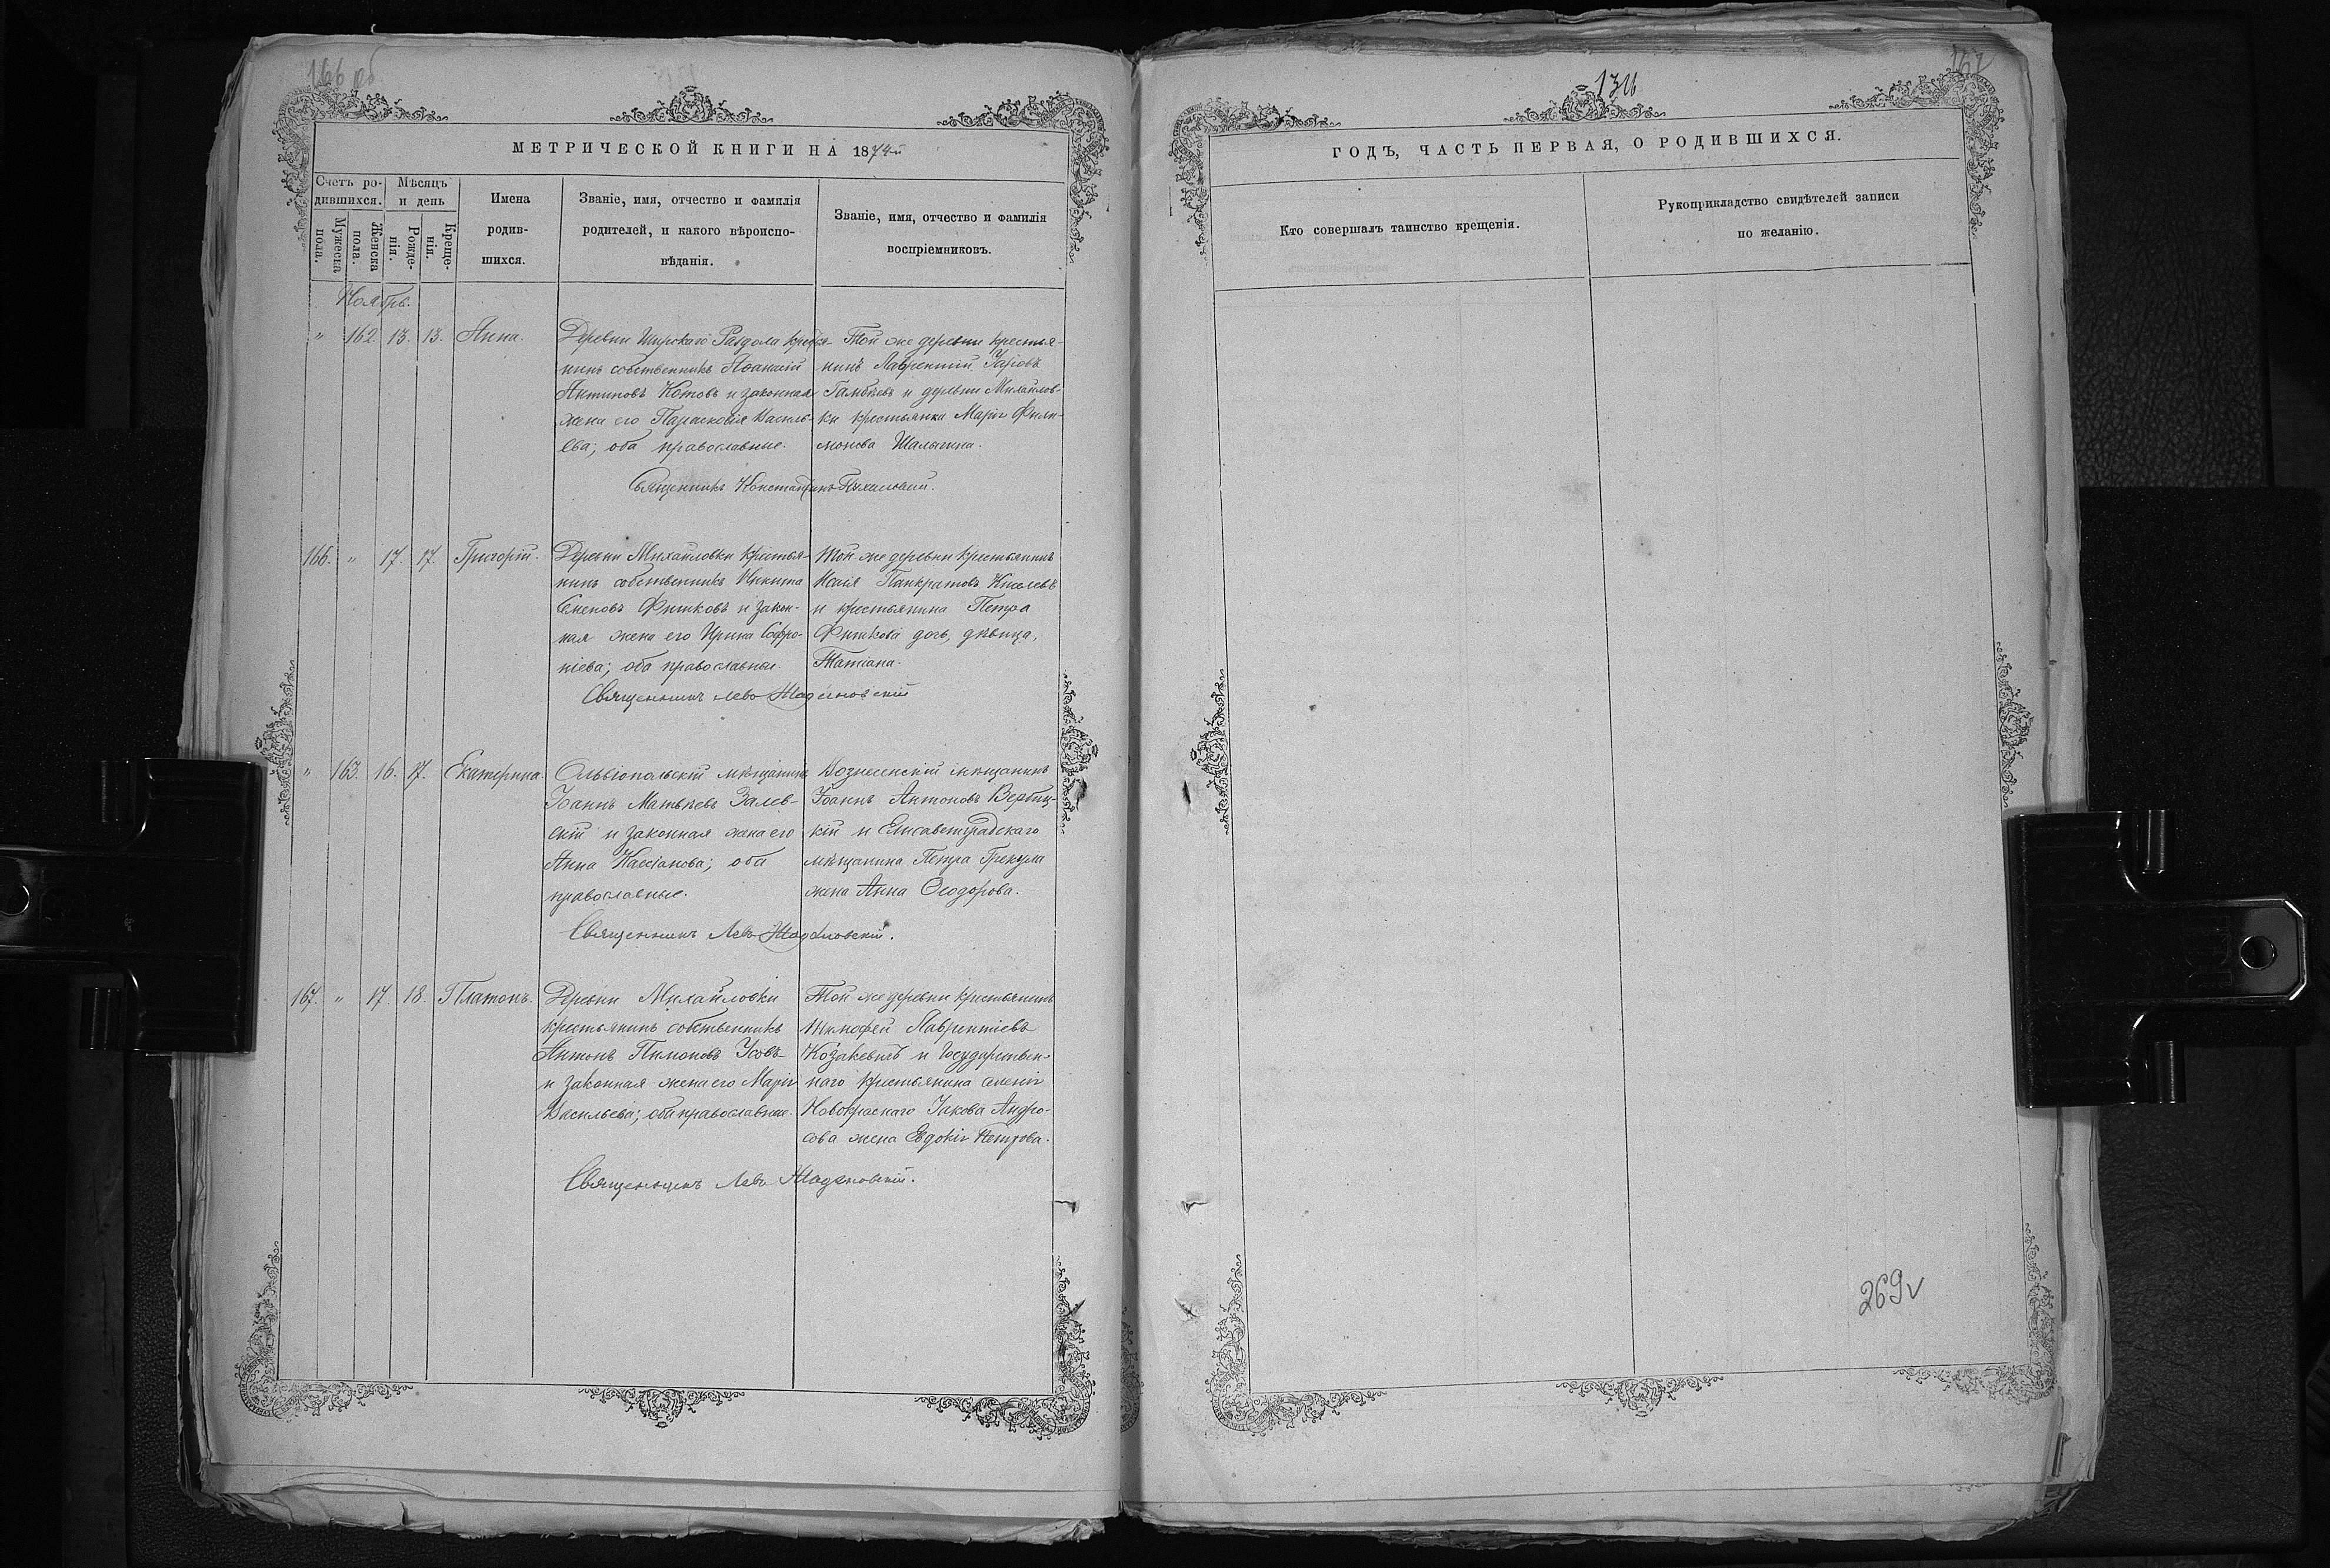 166 об
МЕТРИЧЕСКОЙ КНИГИ НА 1874й
Счетъ ро-
дившихся.
Мужеска
пола.
Женска
пола.
Мѣсяцъ
и день
Рожде-
нія.
Креще-
нія.
Имена
родив-
шихся.
Званіе, имя, отчество и фамилія
родителей, и какого вѣроиспо-
вѣданія.
Званіе, имя, отчество и фамилія
воспріемниковъ.
Ноябрь.
" 162. 13. 13. Анна.
Деревни Широкаго Раздола крестья-
нинъ собственникъ Аѳанасій
Антиповъ Котовъ и законная
жена его Параскевія Василь-
ева; оба православные.
Той же деревни крестья-
нинъ Лаврентій
и деревни Михайлов-
ки крестьянка Марія Фили-
монова Шалыгина.
Священникъ Константинъ
166. " 17. 17. Григорій.
Деревни Михайловки крестья-
нинъ собственникъ Никита
Фишковъ и закон-
ная жена его Ирина Софро-
ніева; оба православные.
Той же деревни крестьянинъ
Исаія Панкратовъ Киселевъ
и крестьянина Петра
Фишкова дочь, дѣвица,
Татіана.
Священникъ Левъ
" 163. 16. 17. Екатерина.
Ольвіопольскій мѣщанинъ
Іоаннъ Матвѣевъ Залев-
скій и законная жена его
Анна Кассіанова; оба
православные.
Вознесенскій мѣщанинъ
Іоаннъ Антоновъ Вербиц-
кій и Елисаветградскаго
мѣщанина Петра Грекула
жена Анна Ѳеодорова.
Священникъ Левъ
167. " 17. 18. Платонъ.
Деревни Михайловки
крестьянинъ собственникъ
Антонъ Пимоновъ Усовъ
и законная жена его Марія
Васильева; оба православные.
Той же деревни крестьянинъ
Тимофей Лаврентіевъ
Козакевичъ и Государствен-
наго крестьянина селенія
Новокраснаго Іакова Андро-
сова жена Евдокія Петрова.
Священникъ Левъ
167
ГОДЪ, ЧАСТЬ ПЕРВАЯ, О РОДИВШИХСЯ.
Кто совершалъ таинство крещенія.
Рукоприкладство свидѣтелей записи
по желанію.
269v